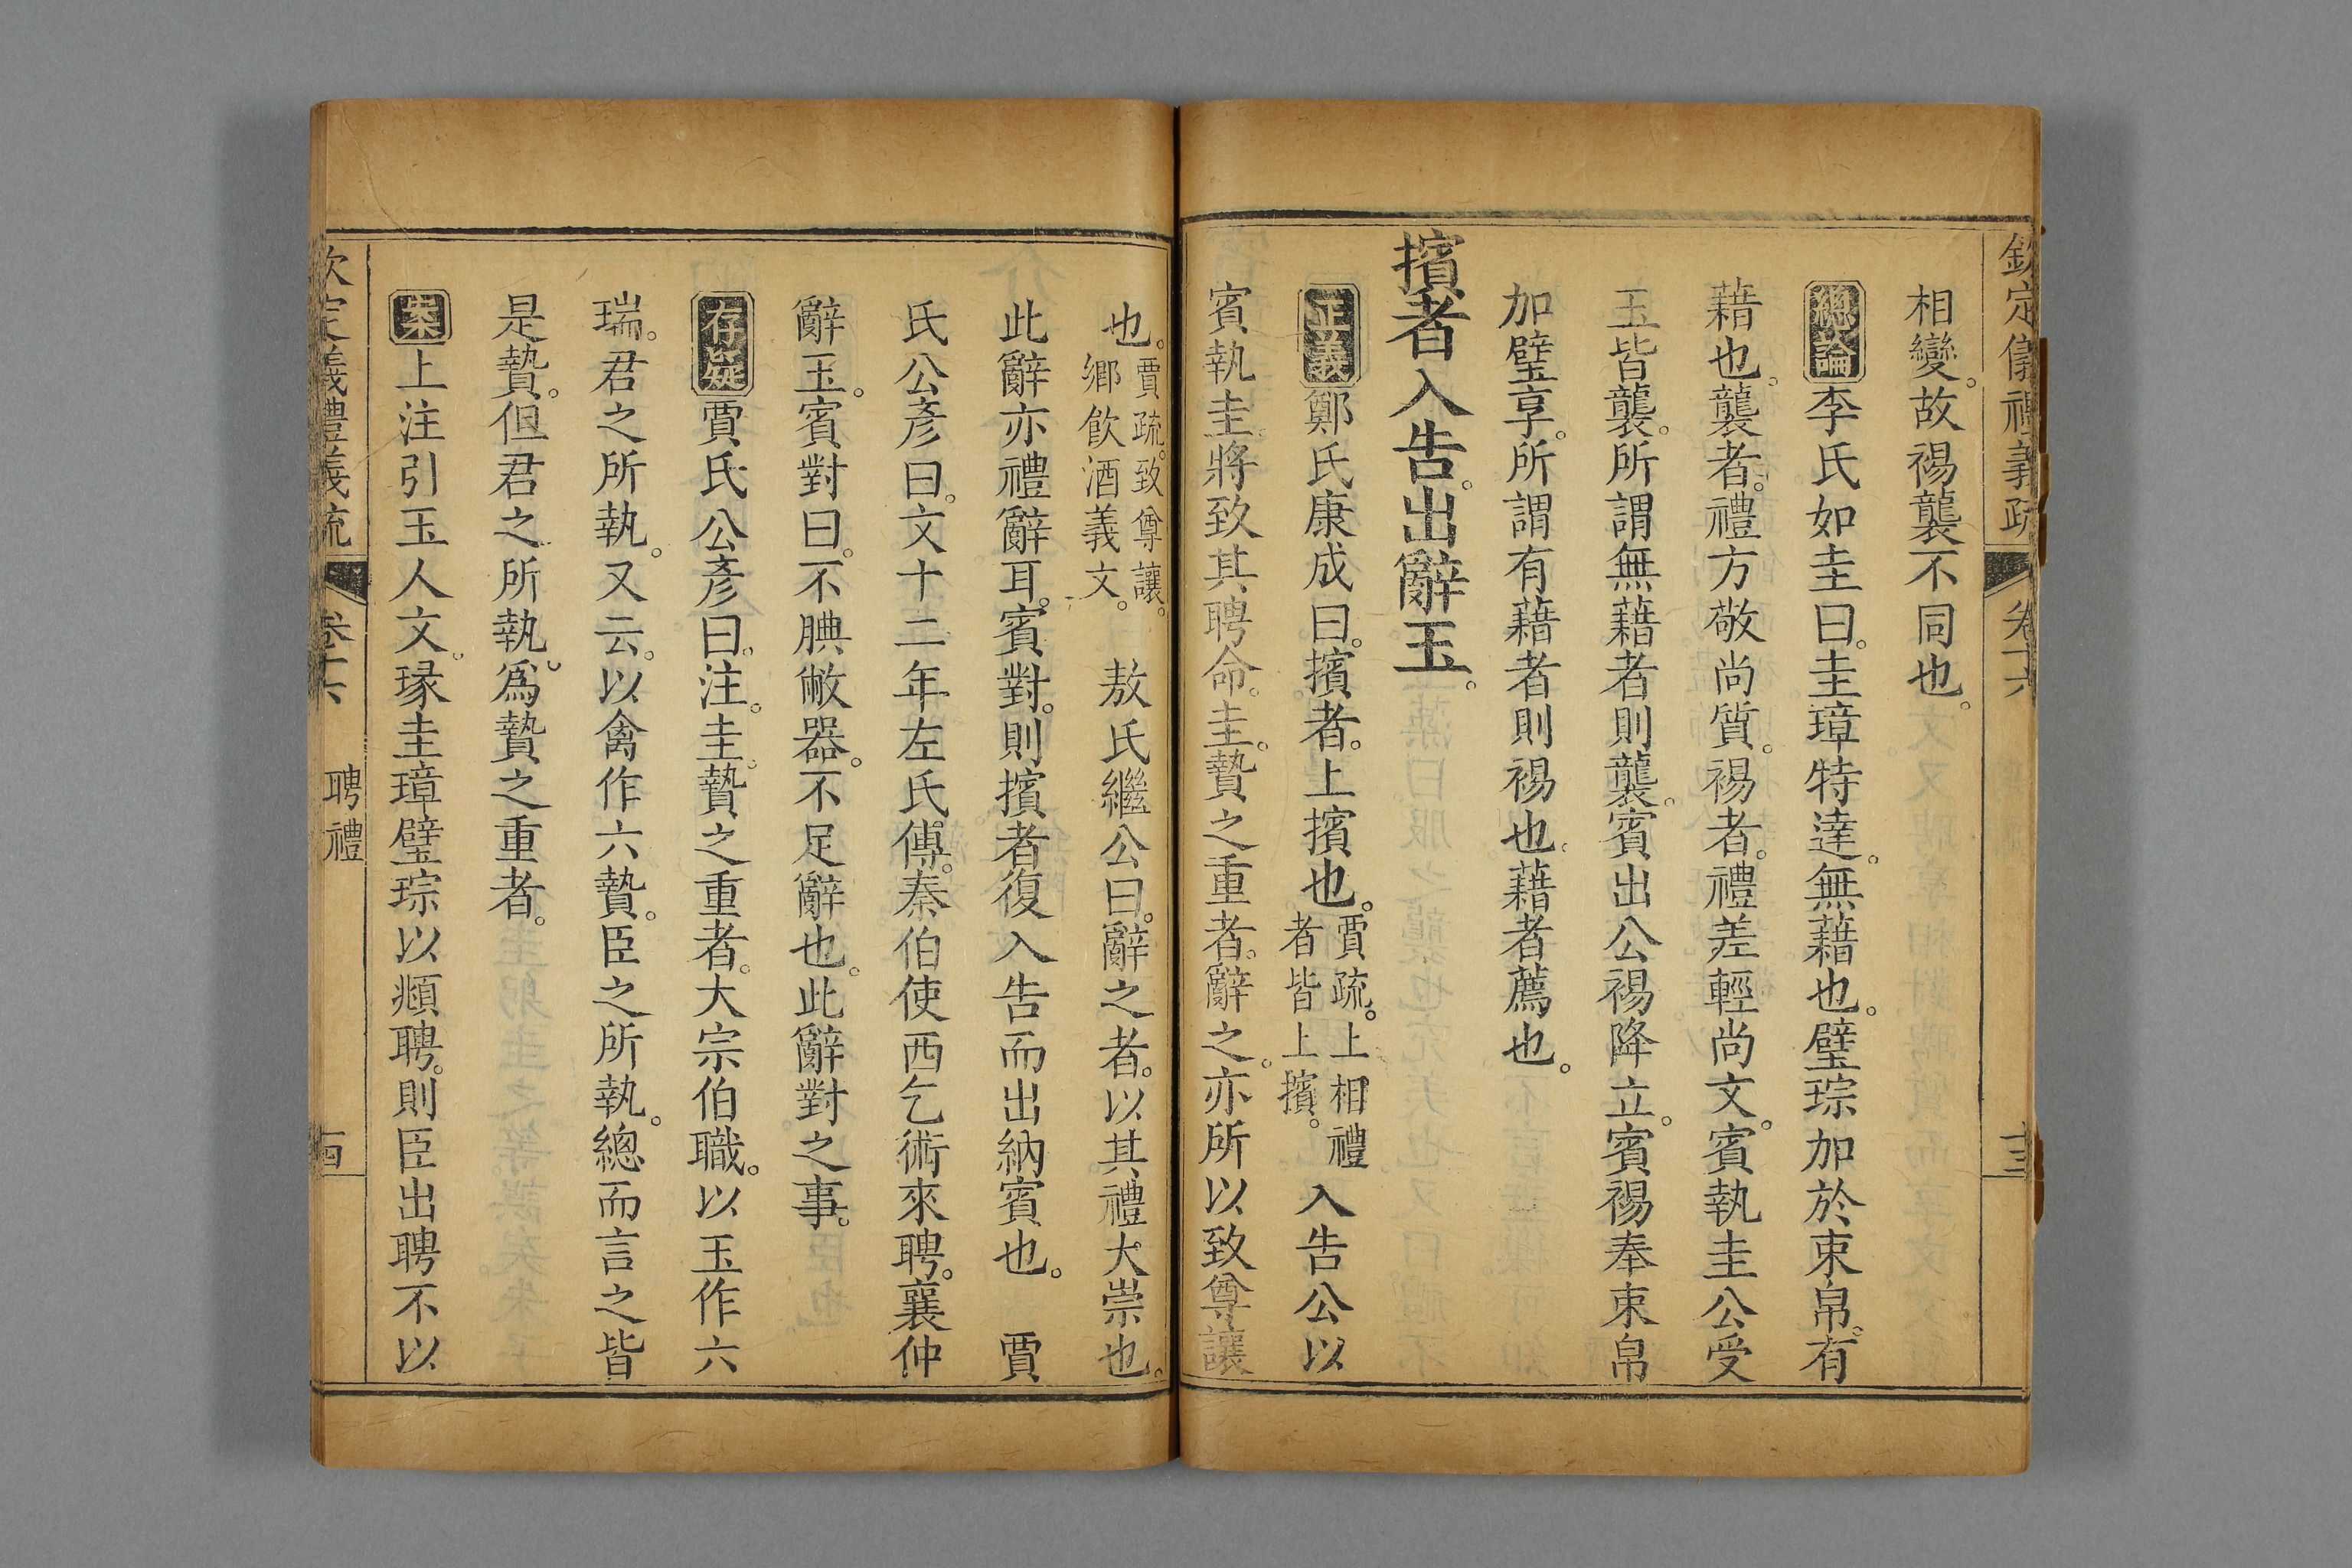 欽定儀禮義疏 卷十六 十三
相變。故裼襲不同也。
總論李氏如圭曰。圭璋特達。無藉也。璧琮加於束帛。有
藉也。襲者。禮方敬尚質。裼者。禮差輕尚文。賓執圭公受
玉皆襲。所謂無藉者則襲。賓出公裼降立。賓裼奉束帛
加璧享。所謂有藉者則裼也。藉者薦也。
擯者入告。出辭玉。
正義鄭氏康成曰。擯者。上擯也。賈疏。上相禮者皆上擯。入告公以
賓執圭。將致其聘命。圭。贄之重者。辭之。亦所以致尊讓
也。賈疏。致尊讓。鄉飲酒義文。 敖氏繼公曰。辭之者。以其禮大崇也。
此辭亦禮辭耳。賓對。則擯者復入告而出納賓也。 賈
氏公彥曰。文十二年左氏傳。秦伯使西乞術來聘。襄仲
辭玉。賓對曰。不腆敝器。不足辭也。此辭對之事。
存疑賈氏公彥曰。注。圭。贄之重者。大宗伯職。以玉作六
瑞。君之所執。又云。以禽作六贄。臣之所執。總而言之皆
是贄。但君之所執。爲贄之重者。
案上注引玉人文。瑑圭璋璧琮以頫聘。則臣出聘不以
欽定義禮義疏 卷十六 聘禮